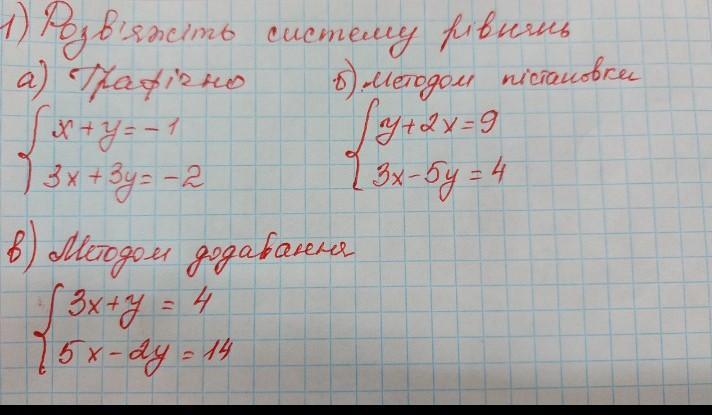 1) Розв'яжіть систему рівнянь
а) Графічно б) Методом пістановки
x + y = -1 y + 2x = 9
3x + 3y = -2 3x - 5y = 4
в) Методом додавання
3x + y = 4
5x - 2y = 14